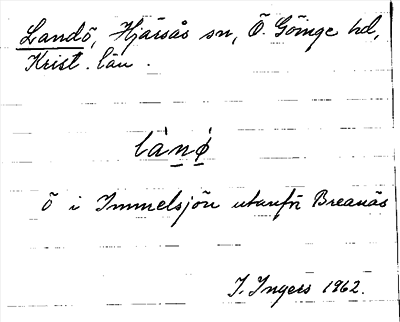 Landö, Hjärsås sn, Ö. Göinge hd,
Krist. län.
lànǿ
ö i Immelsjön utanför Breanäs
I. Ingers 1962.